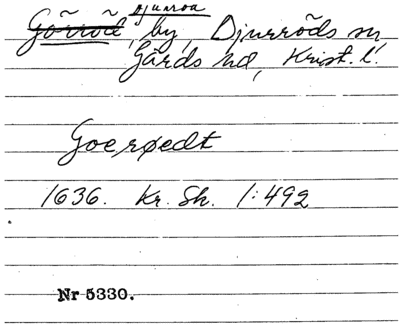 Djurröd
Görröd, by, Djurröds sn
Gärds hd, Krist. l.
Goerøedt
1636. Kr. Sk. 1:492
Nr 5330.